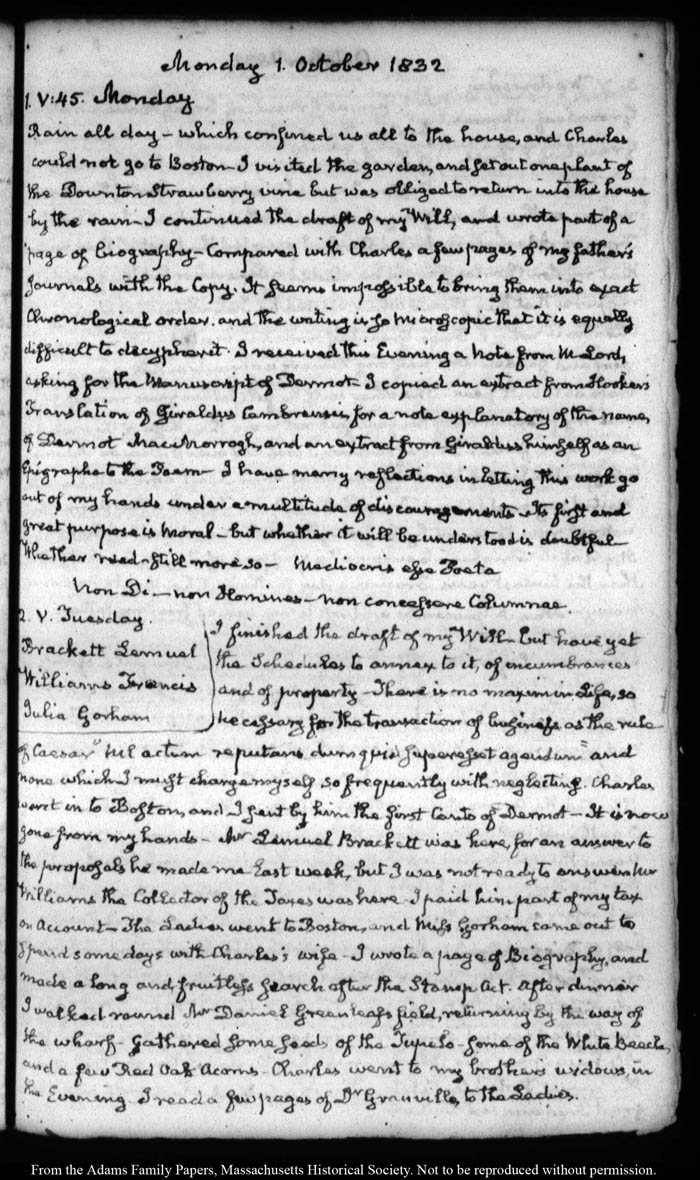 Monday 1. October 1832
1. V:45. Monday
Rain all day – which confined us all to the house, and Charles
could not go to Boston – I visited the garden, and set out one plant of
the Downton Strawberry vine but was obliged to return into the house
by the rain – I continued the draft of my Will, and wrote part of a
page of biography – Compared with Charles a few pages of my father's
Journals with the Copy. It seems impossible to bring them into exact
Chronological order. and the writing is so microscopic that it is equally
difficult to decypher it. I received this Evening a Note from Mr Lord,
asking for the Manuscript of Dermot – I copied an extract from Hooker's
Translation of Giraldus Cambrensis, for a note explanatory of the name,
of Dermot MacMorrogh, and an extract from Giraldus himself as an
Epigraph to the Poem – I have many reflections in letting this work go
out of my hands under a multitude of discouragements – Its first and
great purpose is Moral – but whether it will be understood is doubtful
Whether read – still more so – Mediocris esse Poeta
Non Di – non Homines – non concessere Columnae.
2. V. Tuesday.
Brackett Lemuel
Williams Francis
Julia Gorham
I finished the draft of my Will – but have yet
the Schedules to annex to it, of incumbrances
and of property – There is no maxim in Life, so
necessary for the transaction of business as the rule
of Caesar "Nil actum reputans dum quid superesset agendum" and
none which I must charge myself so frequently with neglecting. Charles
went in to Boston, and I sent by him the first Canto of Dermot – It is now
gone from my hands – Mr Lemuel Brackett was here, for an answer to
the proposals he made me last week, but I was not ready to answer. Mr
Williams the Collector of the Taxes was here – I paid him part of my tax
on Account – The Ladies went to Boston, and Miss Gorham came out to
spend some days with Charles's wife – I wrote a page of Biography, and
made a long and fruitless search after the Stamp Act. After dinner
I walked round Mr Daniel Greenleaf's field, returning by the way of
the wharf – gathered some seeds of the Tupelo – some of the White Beech,
and a few Red Oak Acorns – Charles went to my brother's widow's, in
the Evening I read a few pages of Dr Granville, to the Ladies.
From the Adams Family Papers, Massachusetts Historical Society. Not to be reproduced without permission.